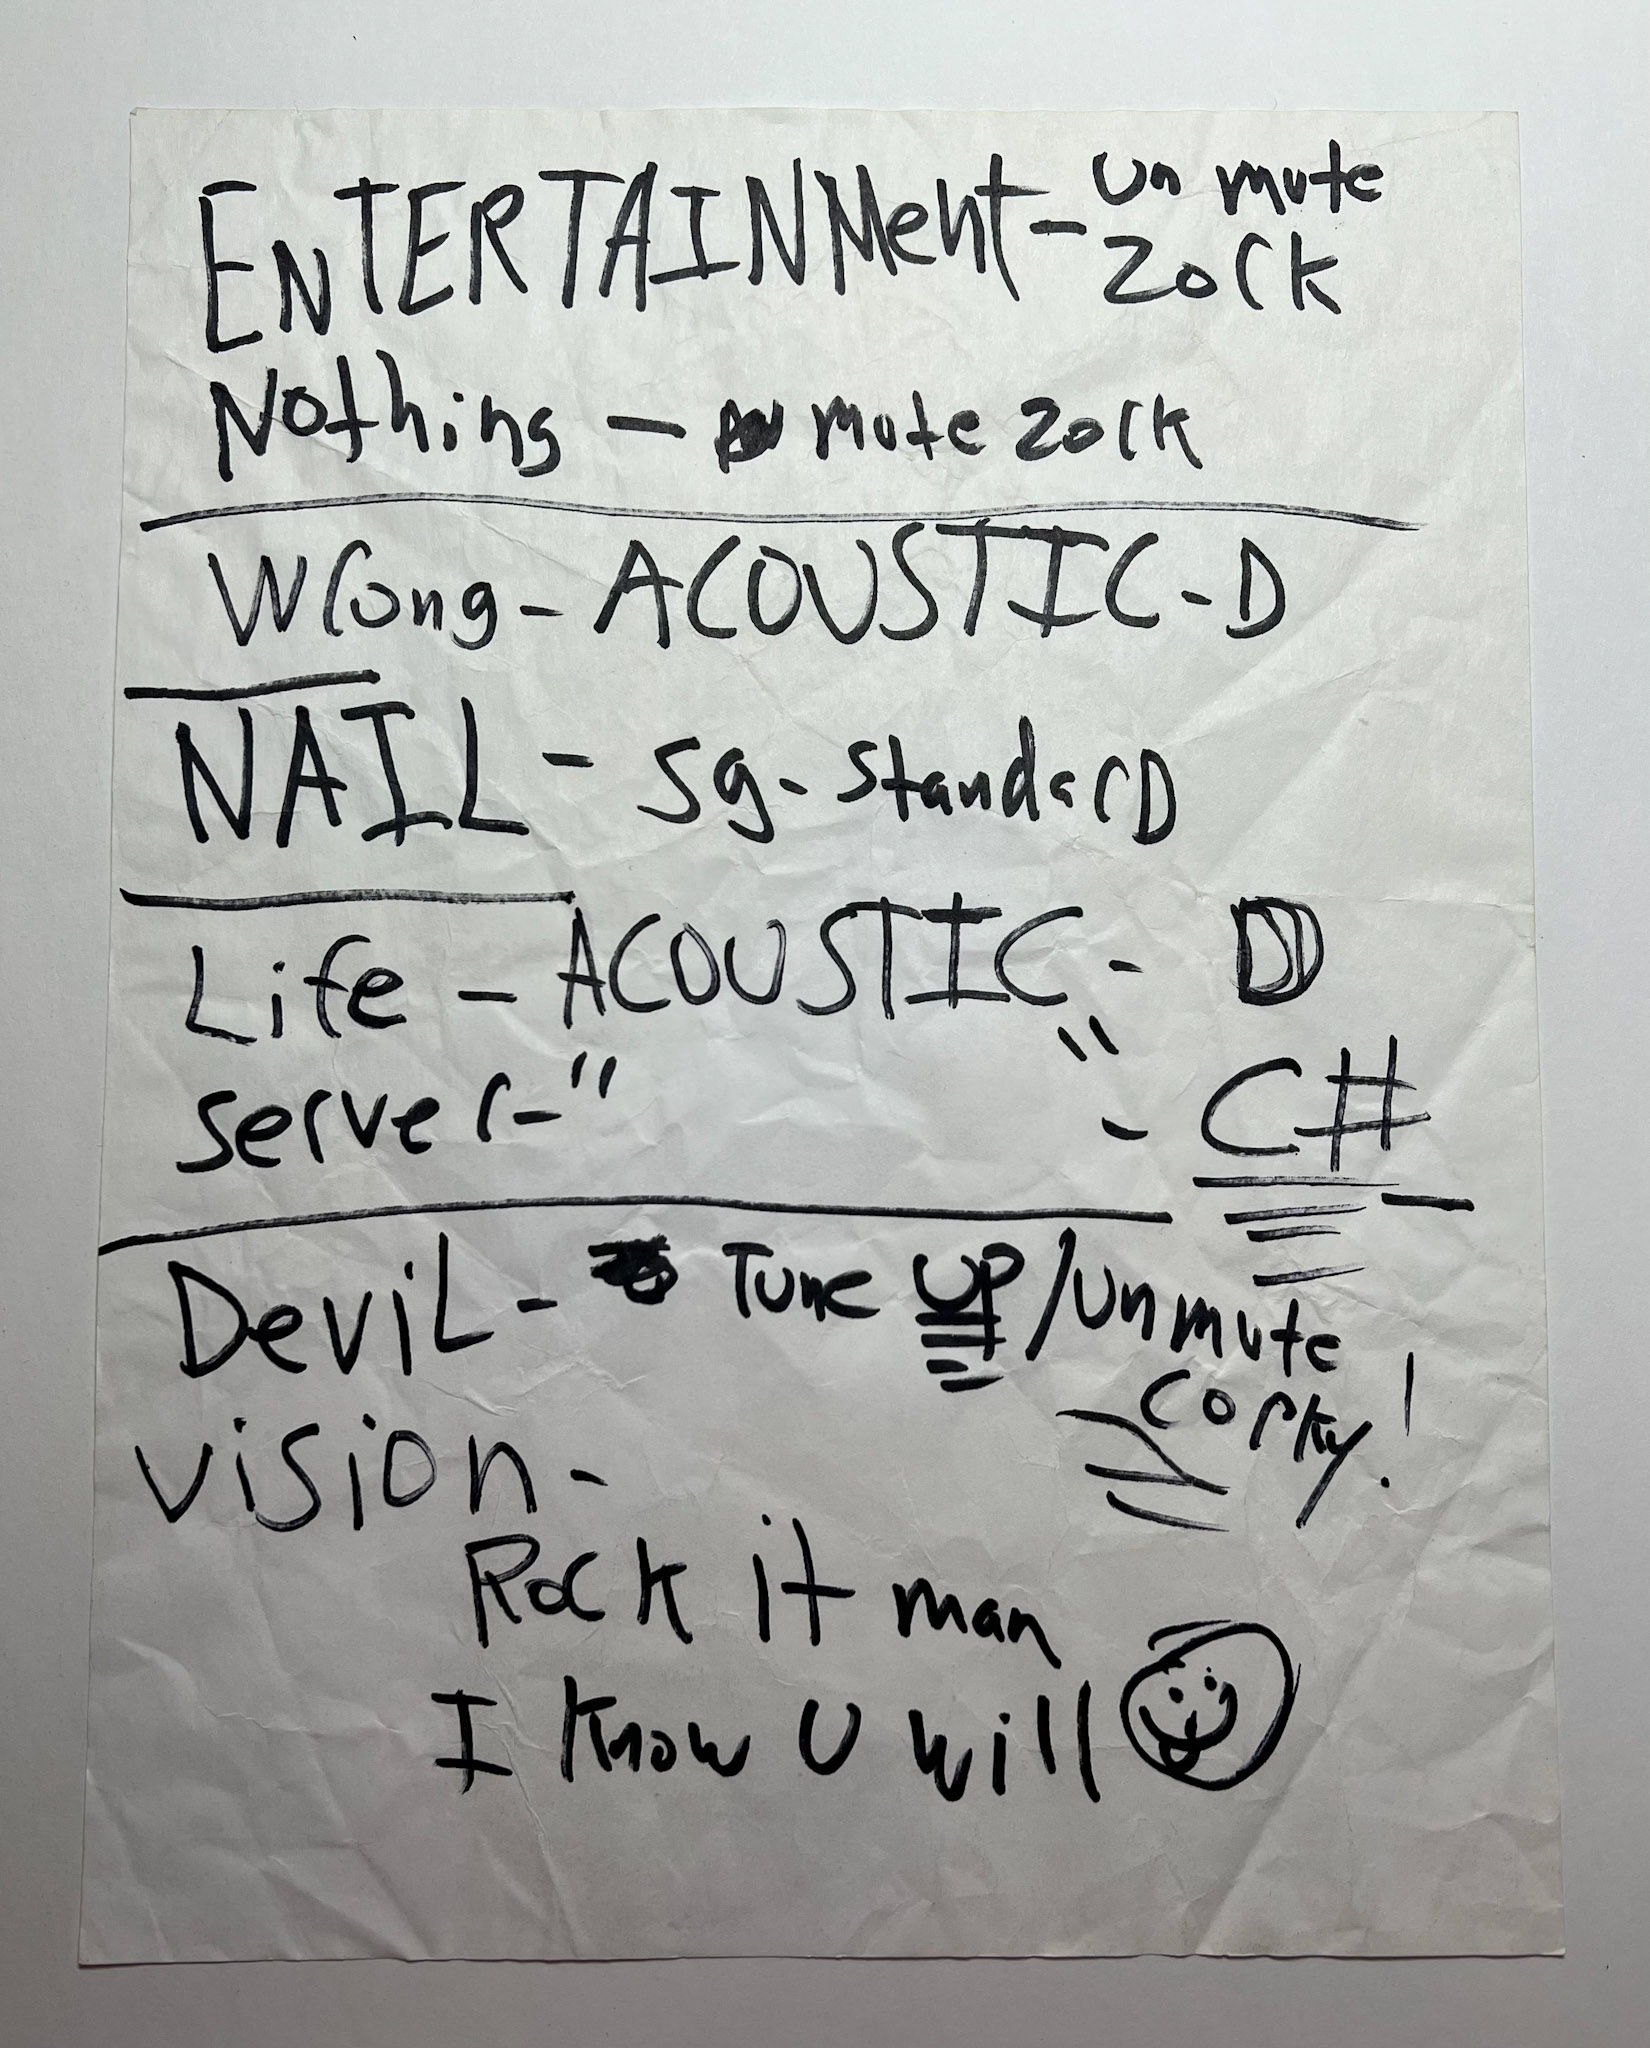 ENTERTAINMent - un mute
zork
Nothing - mute zork
Wrong - ACOUSTIC - D
NAIL - sg - StandarD
Life - ACOUSTIC - D
server - " " - C#
DeviL - Tune UP / unmute
corky!
vision -
Rock it man
I know U will